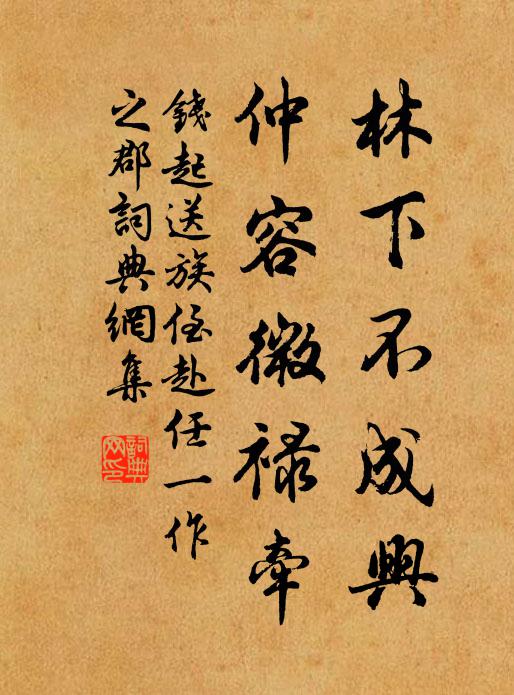 林下不成興
仲容微禄牽
錢起送族侄赴任一作
之郡詞典網集
詞典
网印